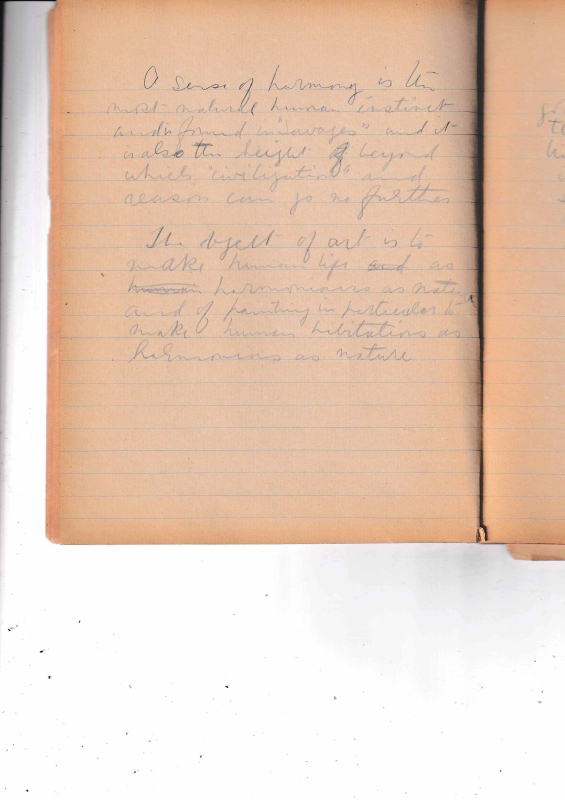 A sense of harmony is the
most natural human instinct
and is found in "savages" and it
is also the height of beyond
which "civilization" and
reason can go no further
The object of art is to
make human life and as
human harmonious as nature
and of painting in particular to
make human habitations as
harmonious as nature